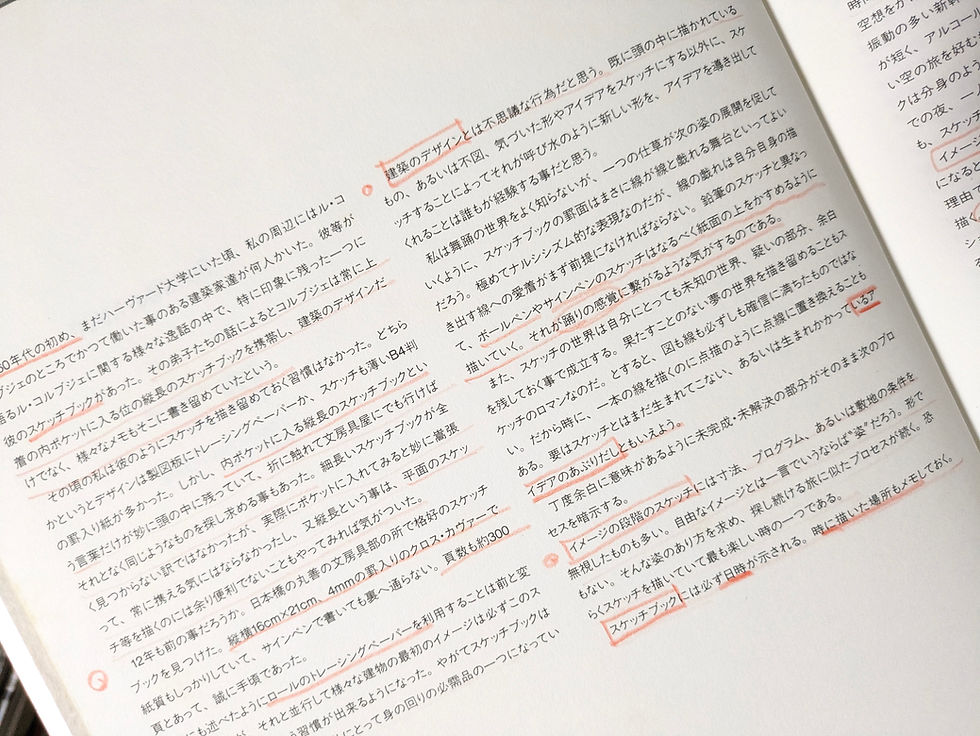 60年代の初め、まだハーヴァード大学にいた頃、私の周辺にはル・コ
ブジェのところでかつて働いた事のある建築家達が何人かいた。彼等が
語るル・コルブジェに関する様々な逸話の中で、特に印象に残った一つに
彼のスケッチブックがあった。その弟子たちの話によるとコルブジェは常に上
着の内ポケットに入る位の縦長のスケッチブックを携帯し、建築のデザインだ
けでなく、様々なメモもそこに書き留めていたという。
その頃の私は彼のようにスケッチを描き留めておく習慣はなかった。どちら
かというとデザインは製図板にトレーシングペーパーか、スケッチも薄いB4判
の罫入り紙が多かった。しかし、内ポケットに入る縦長のスケッチブックとい
う言葉だけが妙に頭の中に残っていて、折に触れて文房具屋にでも行けば
それとなく同じようなものを探し求める事もあった。細長いスケッチブックが全
く見つからない訳ではなかったが、実際にポケットに入れてみると妙に嵩張
って、常に携える気にはならなかったし、又縦長という事は、平面のスケッ
チ等を描くのには余り便利でないこともやってみれば気がついた。
12年も前の事だろうか。日本橋の丸善の文房具部の所で格好のスケッチ
ブックを見つけた。縦横16cm×21cm、4mmの罫入りのクロス・カヴァーで
紙質もしっかりしていて、サインペンで書いても裏へ通らない。頁数も約300
頁とあって、誠に手頃であった。
にも述べたようにロールのトレーシングペーパーを利用することは前と変
が、それと並行して様々な建物の最初のイメージは必ずこのス
う習慣が出来るようになった。やがてスケッチブックは
にとって身の回りの必需品の一つになってい
建築のデザインとは不思議な行為だと思う。既に頭の中に描かれている
もの、あるいは不図、気づいた形やアイデアをスケッチにする以外に、スケ
ッチすることによってそれが呼び水のように新しい形を、アイデアを導き出して
くれることは誰もが経験する事だと思う。
私は舞踊の世界をよく知らないが、一つの仕草が次の姿の展開を促して
いくように、スケッチブックの罫面はまさに線が線と戯れる舞台といってよい
だろう。極めてナルシズム的な表現なのだが、線の戯れは自分自身の描
き出す線への愛着がまず前提になければならない。鉛筆のスケッチと異なっ
て、ボールペンやサインペンのスケッチはなるべく紙面の上をかすめるように
描いていく。それが踊りの感覚に繋がるような気がするのである。
また、スケッチの世界は自分にとっても未知の世界、疑いの部分、余白
を残しておく事で成立する。果たすことのない夢の世界を描き留めることもス
ケッチのロマンなのだ。とすると、図も線も必ずしも確信に満ちたものではな
い。だから時に、一本の線を描くのに点描のように点線に置き換えることも
ある。要はスケッチとはまだ生まれてこない、あるいは生まれかかっているア
イデアのあぶりだしともいえよう。
丁度余白に意味があるように未完成・未解決の部分がそのまま次のプロ
セスを暗示する。
イメージの段階のスケッチには寸法、プログラム、あるいは敷地の条件を
無視したものも多い。自由なイメージとは一言でいうならば“姿”だろう。形で
もない。そんな姿のあり方を求め、探し続ける旅に似たプロセスが続く。恐
らくスケッチを描いていて最も楽しい時の一つである。
スケッチブックには必ず日時が示される。時に描いた場所もメモしておく。
空想をか
振動の多い新幹
が短く、アルコール
い空の旅を好む
クは分身のよう
での夜、一人
も、スケッチ
イメージ
になると
理由で
描く